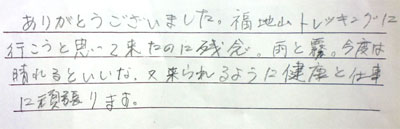 ありがとうございました。福地山トレッキングに
行こうと思って来たのに残念。雨と霧。今度は
晴れるといいな。又来られるように健康と仕事
に頑張ります。